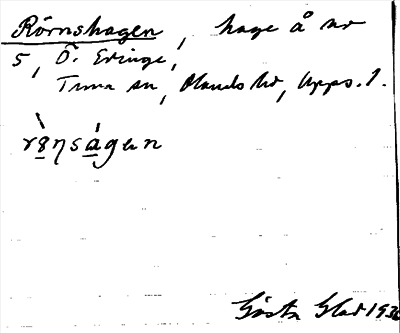 Rörnshagen, hage å nr
5, Ö. Eringe,
Tuna sn, Olands hd, Upps. l.
rönsagan
Gösta Glad 1936